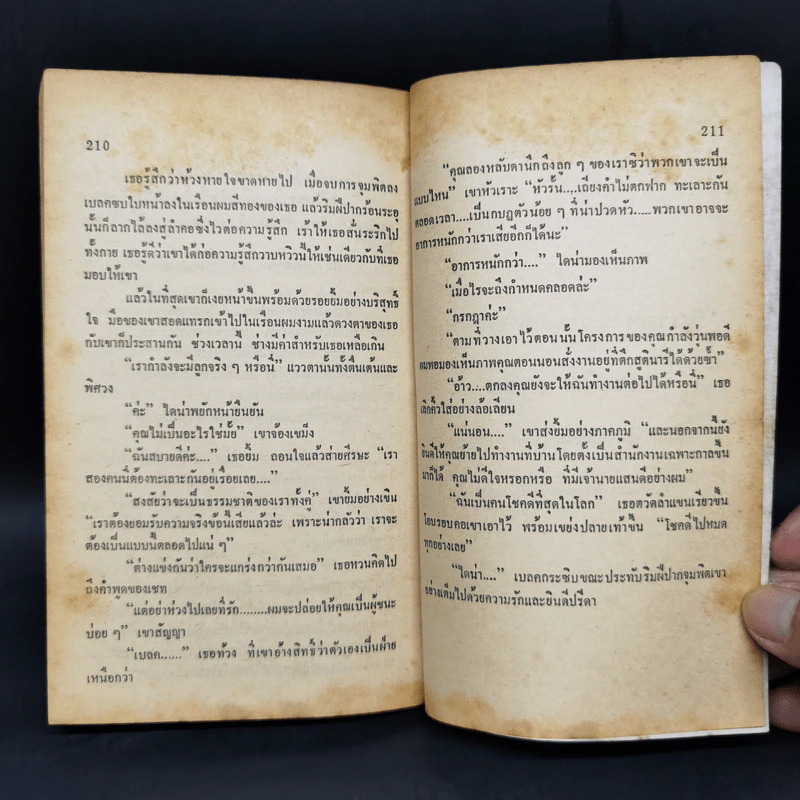 210
เธอรู้สึกว่าห้วงหายใจขาดหายไป เมื่อจบการจุมพิตลง
เบลคซบใบหน้าลงในเรือนผมสีทองของเธอ แล้วริมฝีปากร้อนระอุ
นั้นก็ลากไล้ลงสู่ลำคอซึ่งไวต่อความรู้สึก เร้าให้เธอสั่นระริกไป
ทั้งกาย เธอรู้ดีว่าเขาได้ก่อความรู้สึกวาบหวิวนี้ให้เช่นเดียวกับที่เธอ
มอบให้เขา
แล้วในที่สุดเขาก็เงยหน้าขึ้นพร้อมด้วยรอยยิ้มอย่างบริสุทธิ์
ใจ มือของเขาสอดแทรกเข้าไปในเรือนผมงามแล้วดวงตาของเธอ
กับเขาก็ประสานกัน ช่วงเวลานี้ ช่างมีค่าสำหรับเธอเหลือเกิน
“เรากำลังจะมีลูกจริง ๆ หรือนี่” แววตานั้นทั้งตื่นเต้นและ
พิศวง
“ค่ะ” ไดน่าพยักหน้ายืนยัน
“คุณไม่เป็นอะไรใช่มั้ย” เขาจ้องเขม็ง
“ฉันสบายดีค่ะ....” เธอยิ้ม ถอนใจแล้วส่ายศีรษะ “เรา
สองคนนี่ต้องทะเลาะกันอยู่เรื่อยเลย....”
“สงสัยว่าจะเป็นธรรมชาติของเราทั้งคู่” เขายิ้มอย่างเขิน
“เราต้องยอมรับความจริงข้อนี้เสียแล้วล่ะ เพราะน่ากลัวว่า เราจะ
ต้องเป็นแบบนี้ตลอดไปแน่ ๆ”
“ต่างแข่งกันว่าใครจะแกร่งกว่ากันเสมอ” เธอหวนคิดไป
ถึงคำพูดของเชท
“แต่อย่าห่วงไปเลยที่รัก........ผมจะปล่อยให้คุณเป็นผู้ชนะ
บ่อย ๆ” เขาสัญญา
“เบลค......” เธอท้วง ที่เขาอ้างสิทธิ์ว่าตัวเองเป็นฝ่าย
เหนือกว่า
211
“คุณลองหลับตานึกถึงลูก ๆ ของเราซิว่าพวกเขาจะเป็น
แบบไหน” เขาหัวเราะ “หัวรั้น....เถียงคำไม่ตกฟาก ทะเลาะกัน
ตลอดเวลา....เป็นกบฎตัวน้อย ๆ ที่น่าปวดหัว.....พวกเขาอาจจะ
อาการหนักกว่าเราเสียอีกก็ได้นะ”
“อาการหนักกว่า....” ไดน่ามองเห็นภาพ
“เมื่อไรจะถึงกำหนดคลอดล่ะ”
“กรกฎาค่ะ”
“ตามที่วางเอาไว้ตอนนั้นโครงการของคุณกำลังวุ่นพอดี
ผมพอมองเห็นภาพคุณตอนนอนสั่งงานอยู่ที่ตึกสูตินารีได้ด้วยซ้ำ”
“อ้าว....ตกลงคุณยังจะให้ฉันทำงานต่อไปได้หรือนี่” เธอ
เลิกคิ้วใส่อย่างล้อเลียน
“แน่นอน....” เขาส่งยิ้มอย่างภาคภูมิ “และนอกจากนี้ยัง
ยินดีให้คุณย้ายไปทำงานที่บ้านโดยตั้งเป็นสำนักงานเฉพาะกาลขึ้น
มาก็ได้ คุณไม่ดีใจหรอกหรือ ที่มีเจ้านายแสนดีอย่างผม”
“ฉันเป็นคนโชคดีที่สุดในโลก” เธอตวัดลำแขนเรียวขึ้น
โอบรอบคอเขาเอาไว้ พร้อมเขย่งปลายเท้าขึ้น “โชคดีไปหมด
ทุกอย่างเลย”
“ไดน่า....” เบลคกระซิบขณะประทับริมฝีปากจุมพิตเขา
อย่างเต็มไปด้วยความรักและยินดีปรีดา